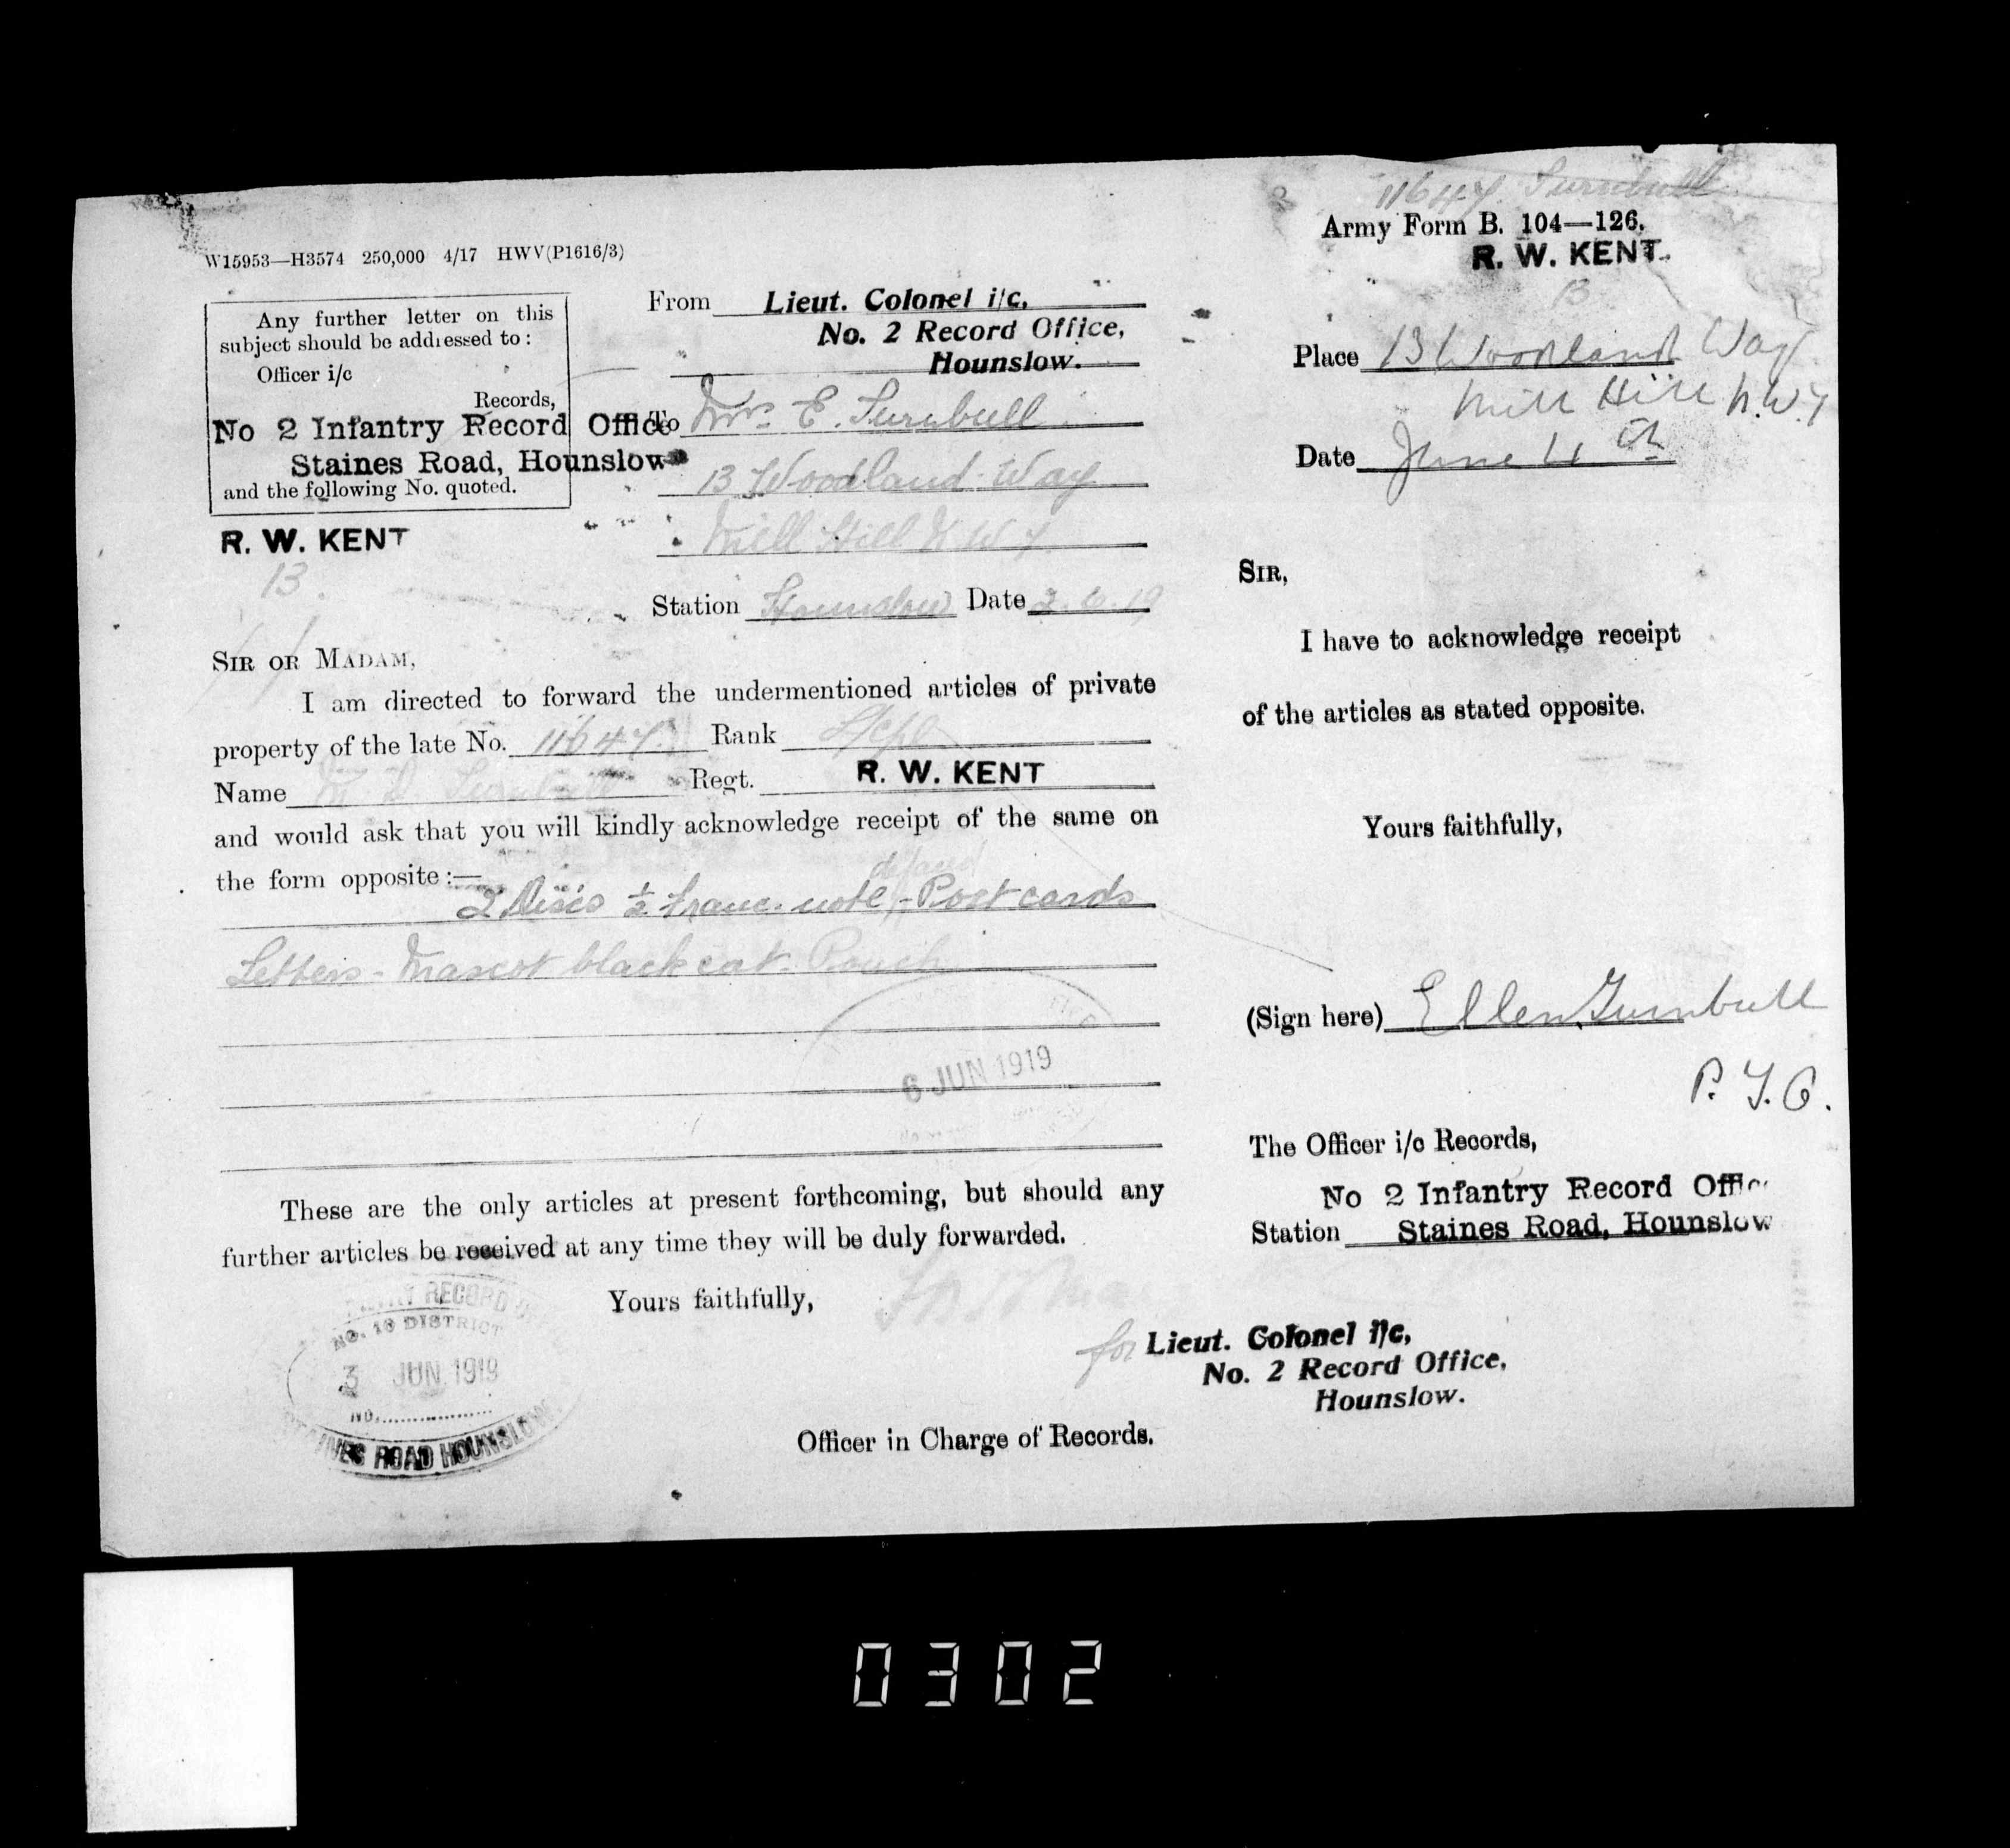 W15953—H3574 250,000 4/17 HWV(P1616/3)
Any further letter on this
subject should be addressed to:
Officer i/c
Records,
No 2 Infantry Record Office
Staines Road, Hounslow
and the following No. quoted.
R. W. KENT
13.
From Lieut. Colonel i/c,
No. 2 Record Office,
Hounslow.
To Mrs E. Turnbull.
13 Woodland Way
Mill Hill N.W 7
Station Hounslow Date 2.6.19
SIR OR MADAM,
I am directed to forward the undermentioned articles of private
property of the late No. 11647 Rank L/Cpl
Name Turnbull Regt. R. W. KENT
and would ask that you will kindly acknowledge receipt of the same on
the form opposite:—
2 Discs ½ franc. note - Post cards
Letters - Mascot black cat. Pouch
6 JUN 1919
These are the only articles at present forthcoming, but should any
further articles be received at any time they will be duly forwarded.
Yours faithfully,
for Lieut. Colonel i/c,
No. 2 Record Office,
Hounslow.
Officer in Charge of Records.
RECORD
NO. 10 DISTRICT
3 JUN. 1919
NO.
STAINES ROAD HOUNSLOW
11647. Turnbull
Army Form B. 104—126.
R. W. KENT.
13
Place 13 Woodland Way
Mill Hill N.W.7
Date June 4th
SIR,
I have to acknowledge receipt
of the articles as stated opposite.
Yours faithfully,
(Sign here) Ellen Turnbull
P. T. O.
The Officer i/c Records,
No 2 Infantry Record Offic
Station Staines Road, Hounslow
0302